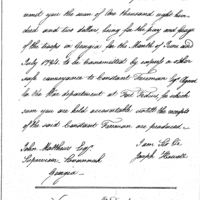 remit you the sum of One thousand eight hun-
dred and two dollars, being for the pay and forage
of the troops in Georgia for the Months of June and
July 1794. to be transmitted by express or other
safe conveyance to Constant Freeman Esqr Agent
for the War department at Fort Fidius, for which
sum you are held accountable untill the receipts
of the said Constant Freeman are produced.
John Matthews Esqr.
I am Sir &c.
Supervisor Savannah
Joseph Howell
Georgia